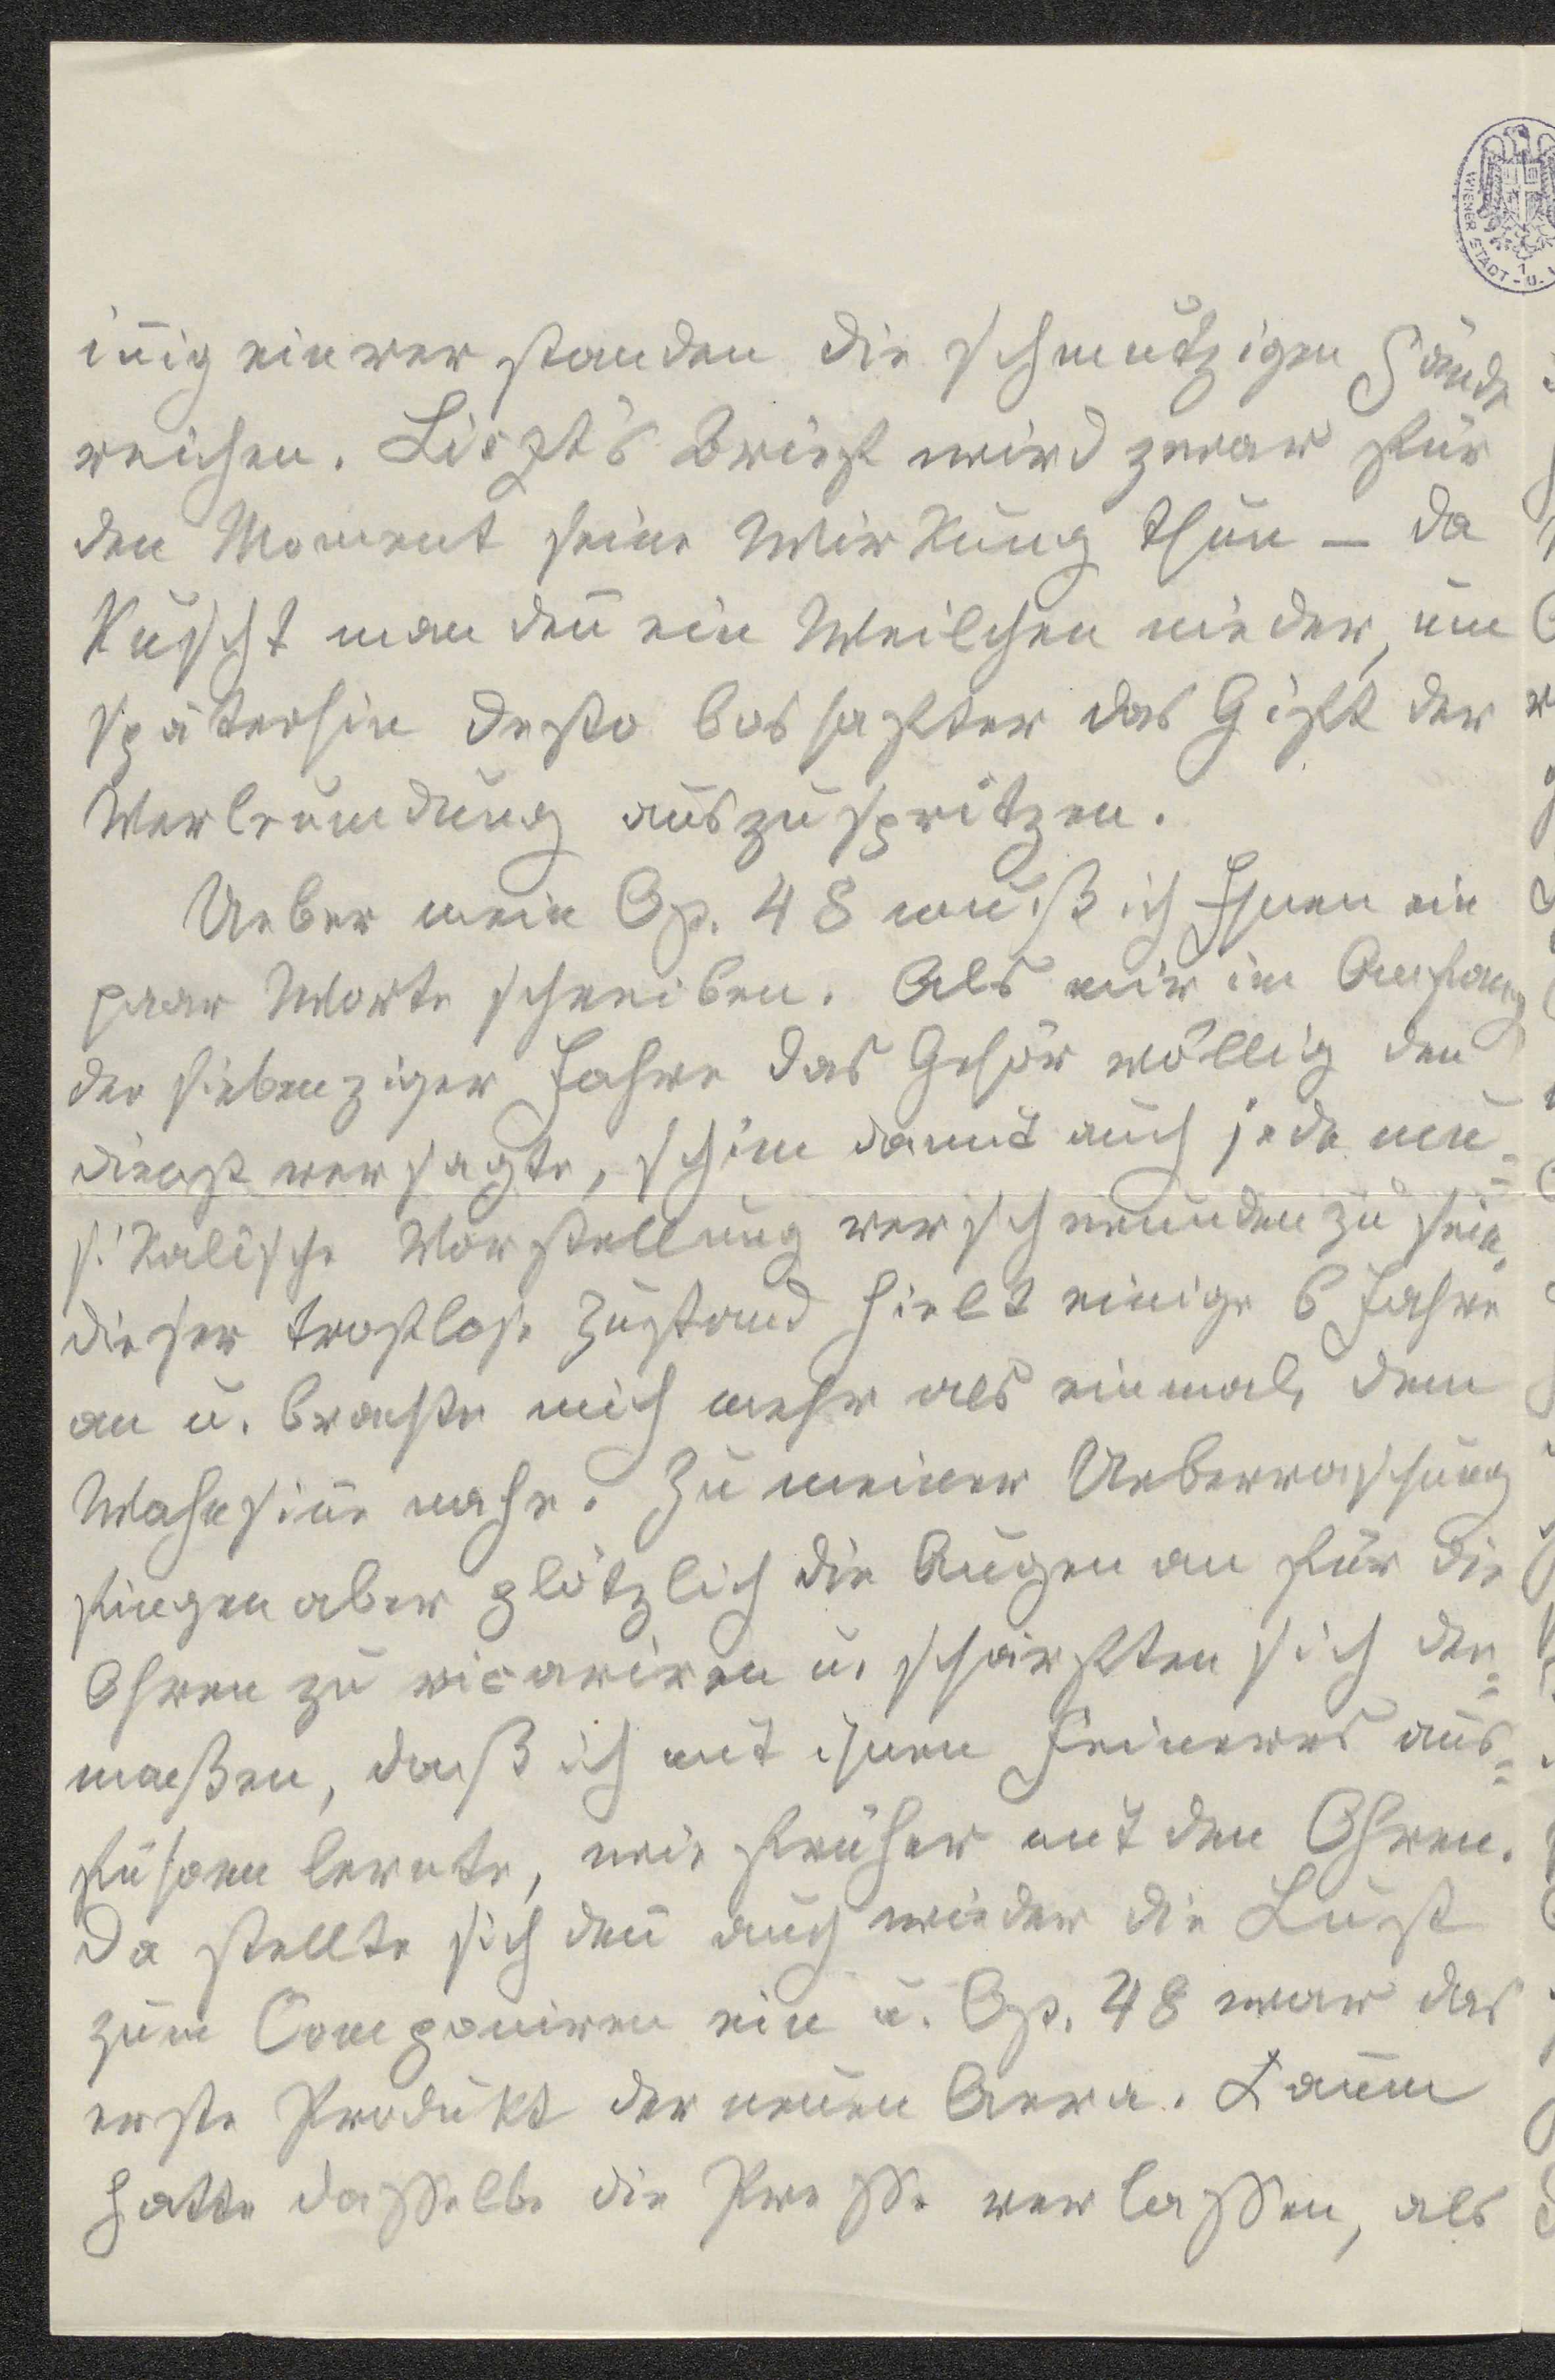 WIENER STADT - U.
1
iñig einverstanden die schmutzigen Hände
reichen. Liszt's Brief wird zwar für
den Moment seine Wirkung thun – da
kuscht man deñ ein Weilchen nieder, um
späterhin desto boshafter das Gift der
Verleumdung auszuspritzen.
Ueber mein Op. 48 muß ich Ihnen ein
paar Worte schreiben. Als mir im Anfang
der siebenziger Jahre das Gehör völlig den
Dienst versagte, schien damit auch jede mu=
sikalische Vorstellung verschwunden zu sein,
dieser trostlose Zustand hielt einige 6 Jahre
an u. brachte mich mehr als einmal dem
Wahnsiñe nahe. Zu meiner Ueberraschung
fingen aber plötzlich die Augen an für die
Ohren zu vicariren u. schärften sich der=
maßen, daß ich mit ihnen Feineres aus=
führen lernte, wie früher mit den Ohren.
Da stellte sich deñ auch wieder die Lust
zum Componiren ein u. Op. 48 war das
erste Produkt der neuen Aera. Kaum
hatte dasselbe die Presse verlassen, als